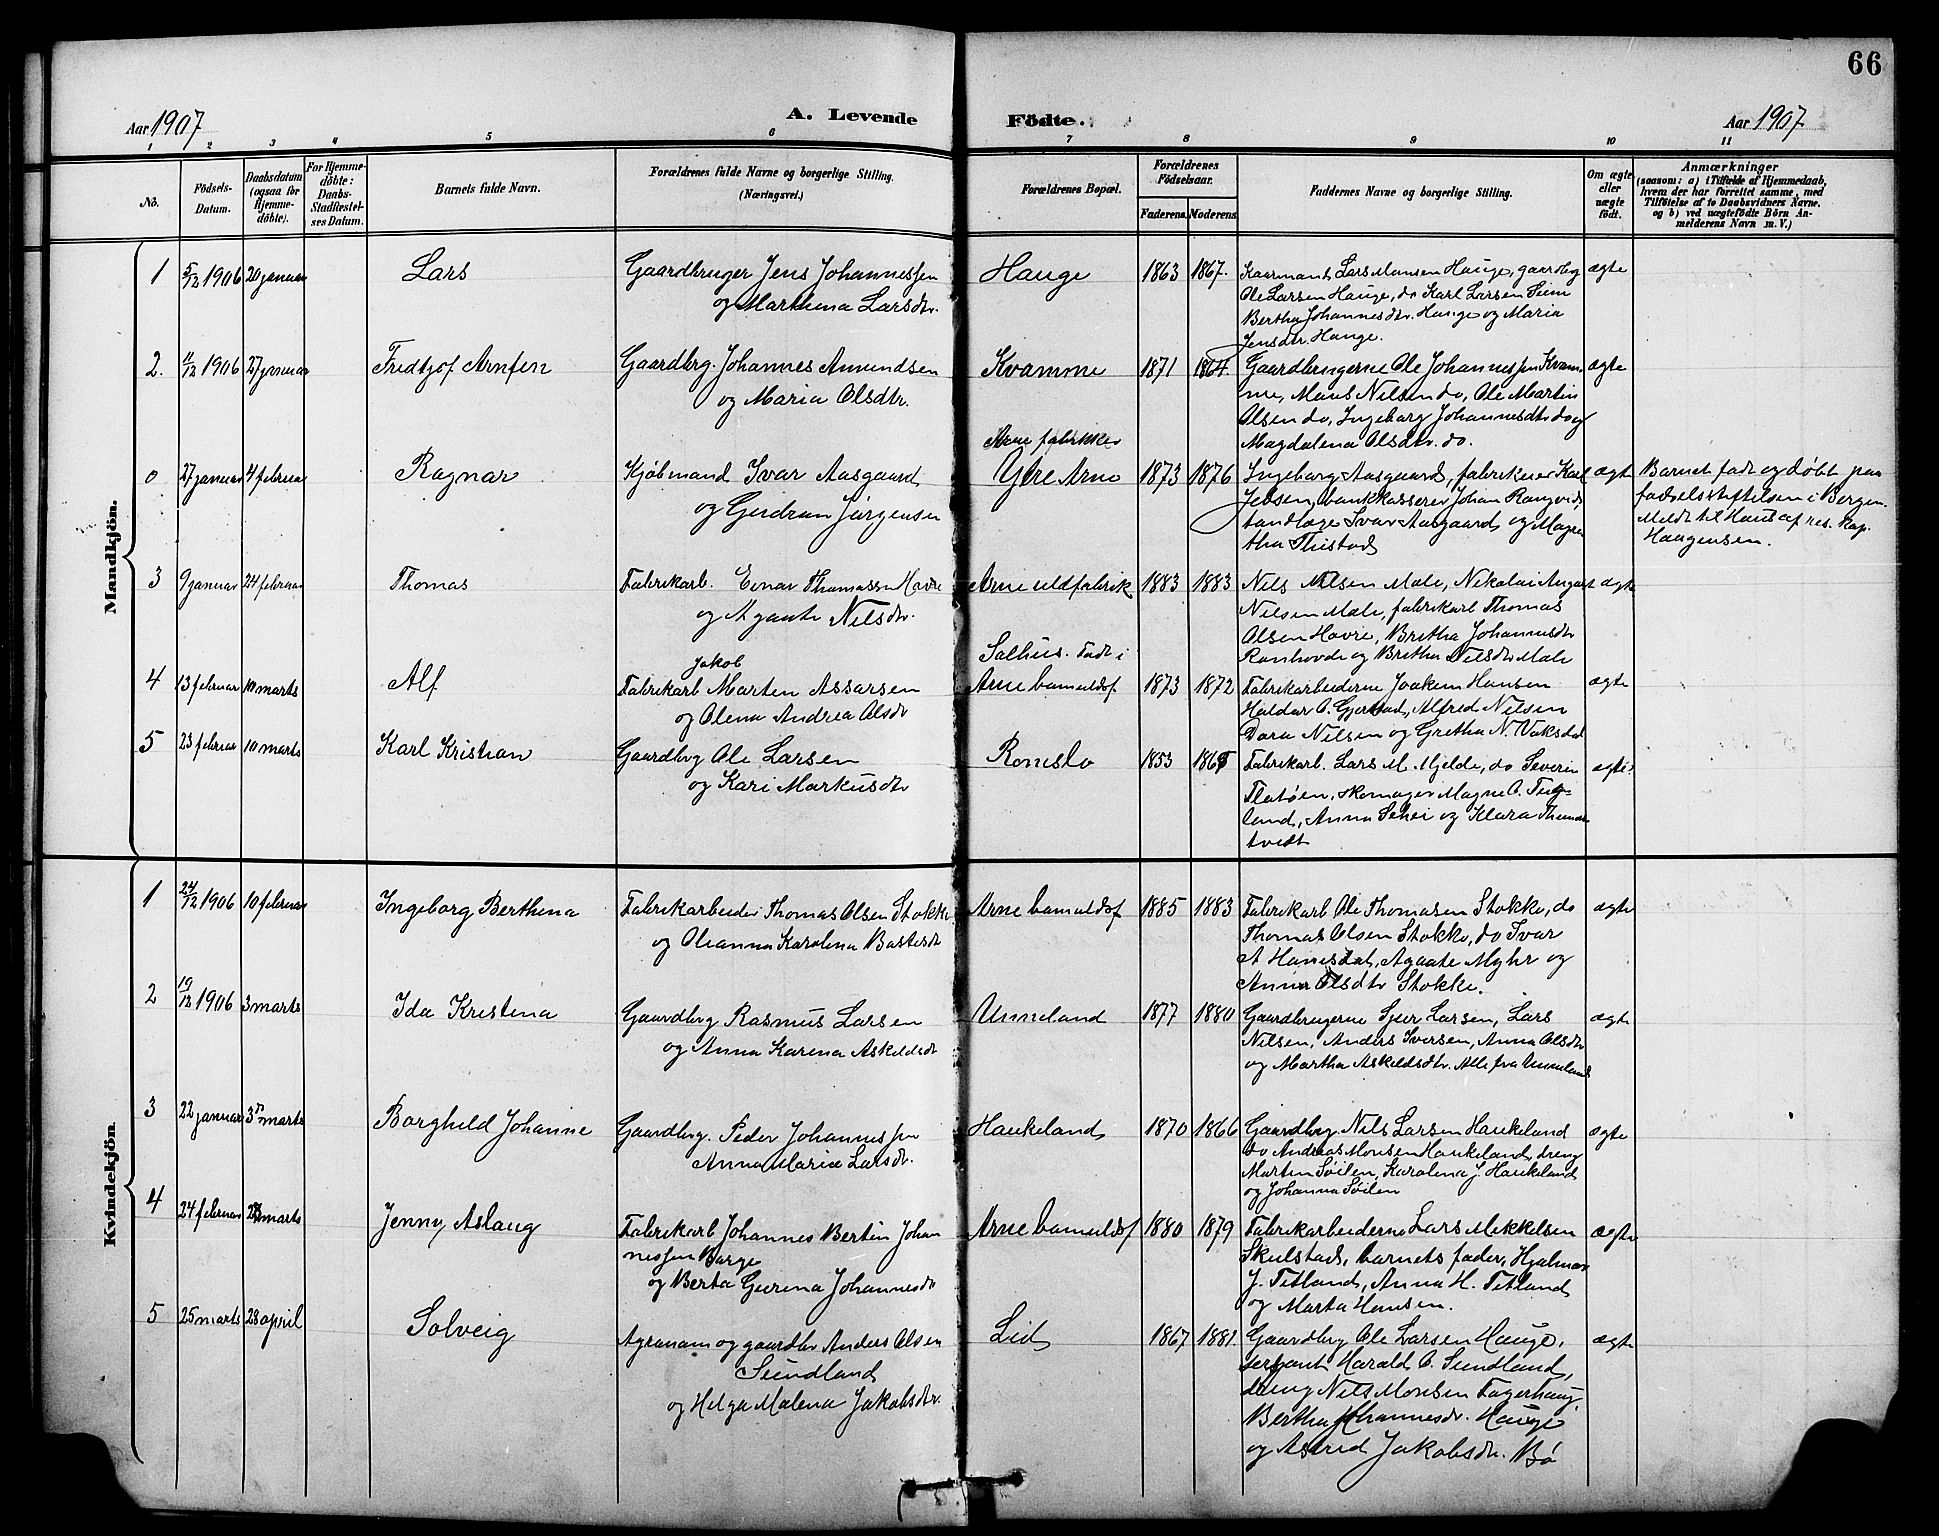 66
Aar 1907
A. Levende
Födte.
Aar 1907
1 2 3 4 5 6 7 8 9 10 11
No.
Födsels-
Datum.
Daabsdatum
(ogsaa for
Hjemme-
döbte).
For Hjemme-
döbte:
Daabs-
Stadfestel-
ses Datum.
Barnets fulde Navn.
Forældrenes fulde Navne og borgerlige Stilling.
(Næringsvei.)
Forældrenes Bopæl.
Forældrenes
Födselsaar.
Faderens. Moderens.
Faddernes Navne og borgerlige Stilling.
Om ægte
eller
uægte
födt.
Anmærkninger
(saasom: a) i Tilfælde af Hjemmedaab,
hvem der har forrettet samme, med
Tilföielse af to Daabsvidners Navne.
og b) ved uægtefödte Börn An-
melderens Navn m. V.)
Mandkjön.
1 5/12 1906 20 januar Lars
Gaardbruger Jens Johannessen
og Marthina Larsdtr.
Hauge 1863 1867.
Kaarmand Lars Monsen Hauge, gaardbg
Ole Larsen Hauge, do Karl Larsen Seim
Bertha Johannesdtr. Hauge og Maria
Jensdtr. Hauge.
ægte
2. 11/12 1906 27 januar Fredtjof Arnfen
Gaardbrg. Johannes Amundsen
og Maria Olsdtr.
Kvamme 1871 1864.
Gaardbrugerne Ole Johannessen Kvam-
me, Mons Nilsen do, Ole Martin
Olsen do, Ingeborg Johannesdtr do og
Magdalena Olsdtr. do.
ægte
0 27 januar 4 februar Ragnar
Kjøbmand Ivar Aasgaard
og Gudrun Jürgensen
Arne fabrikker
Ytre Arne 1873 1876
Ingeborg Aasgaard, fabrikeier Karl
Jebsen, bankkasserer Johan
tandlæge Ivar Aasgaard og Magre
tha Thistad
ægte
Barnet født og døbt paa
fødselsstiftelsen i Bergen.
Meldt til Haus af res. kap.
Haugensen.
3 9 januar 24 februar Thomas
Fabrikarb. Einar Thomassen Havre
og Agaate Nilsdtr.
Arne uldfabrik 1883 1883
Nils Nilsen Male, Nikolai August
Nilsen Male, fabrikarb Thomas
Olsen Havre, Britha Johannesdtr
Ranhovde og Britha Nilsdtr Male
ægte
4 13 februar 10 marts Alf
Jakob
Fabrikarb Marten Assarsen
og Olena Andrea Olsdtr
Salhus. Født i
Arne bomuldsf. 1873 1872
Fabrikarbeiderne Joakim Hansen
Haldor O. Gjerstad, Alfred Nilsen
Dora Nilsen og Gretha N. Vaksdal
ægte
5 23 februar 10 marts Karl Kristian
Gaardbrg Ole Larsen
og Kari Markusdtr
Romslo 1853 1865
Fabrikarb. Lars M. Mjelde, do Severin
Flatøen, skomager Magne O. Tug-
land, Anna Schei og Klara Thunes
tvedt
ægte.
Kvindekjön.
1 24/12 1906 10 februar Ingeborg Berthina
Fabrikarbeider Thomas Olsen Stokke
og Olianna Karolina Bastesdtr
Arne bomuldsf 1885 1883
Fabrikarb Ole Thomasen Stokke, do
Thomas Olsen Stokke, do Ivar
A Hanisdal, Agaate Myhr og
Anna Olsdtr Stokke.
ægte
2 19/12 1906 3 marts Ida Kristina
Gaardbrg Rasmus Larsen
og Anna Karina Askeldsdtr
Unneland 1877 1880
Gaardbrugerne Sjur Larsen, Lars
Nilsen, Anders Iversen, Anna Olsdtr
og Martha Askeldsdtr. Alle fra Unneland
ægte
3 22 januar 3 marts Borghild Johanne
Gaardbrg. Peder Johannessen
Anna Maria Larsdtr.
Haukeland 1870 1866
Gaardbrg Nils Larsen Haukeland
do Andreas Monsen Haukeland, dreng
Martin Søilen, Karolina J. Haukeland
og Johanna Søilen
ægte
4 24 februar marts Jenny Aslaug
Fabrikarb Johannes Bertin Johan
nessen Borge
og Berta Gurina Johannesdtr
Arne bomuldsf 1880 1879
Fabrikarbeiderne Lars Mikkelsen
Skulstad, barnets fader, Hjalmar
J. Titland, Anna H. Titland
og Marta Hansen.
ægte
5 25 marts 28 april Solveig
Agronom og gaardbr Anders Olsen
Sundland
og Helga Malena Jakobsdtr.
Lid 1867 1881.
Gaardbrg Ole Larsen Hauge,
sergeant Harald O. Sundland,
dreng Nils Monsen Fagerhaug,
Bertha Johannesdtr. Hauge
og Astrid Jakobsdtr. Bø
ægte